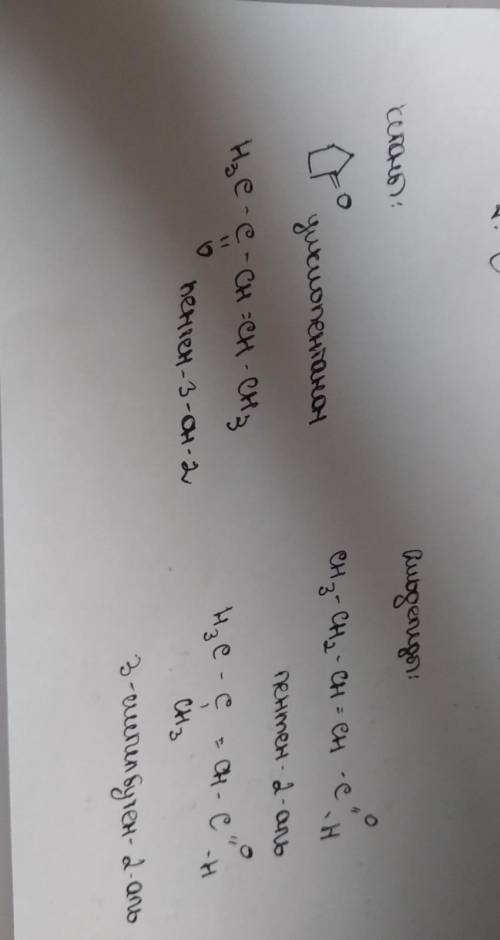 кетоны:
O
циклопентанон
H3C - C - CH = CH - CH3
O
пентен-3-он-2
альдегиды:
CH3 - CH2 - CH = CH - C - H
O
пентен-2-аль
H3C - C = CH - C - H
CH3
O
3-метилбутен-2-аль